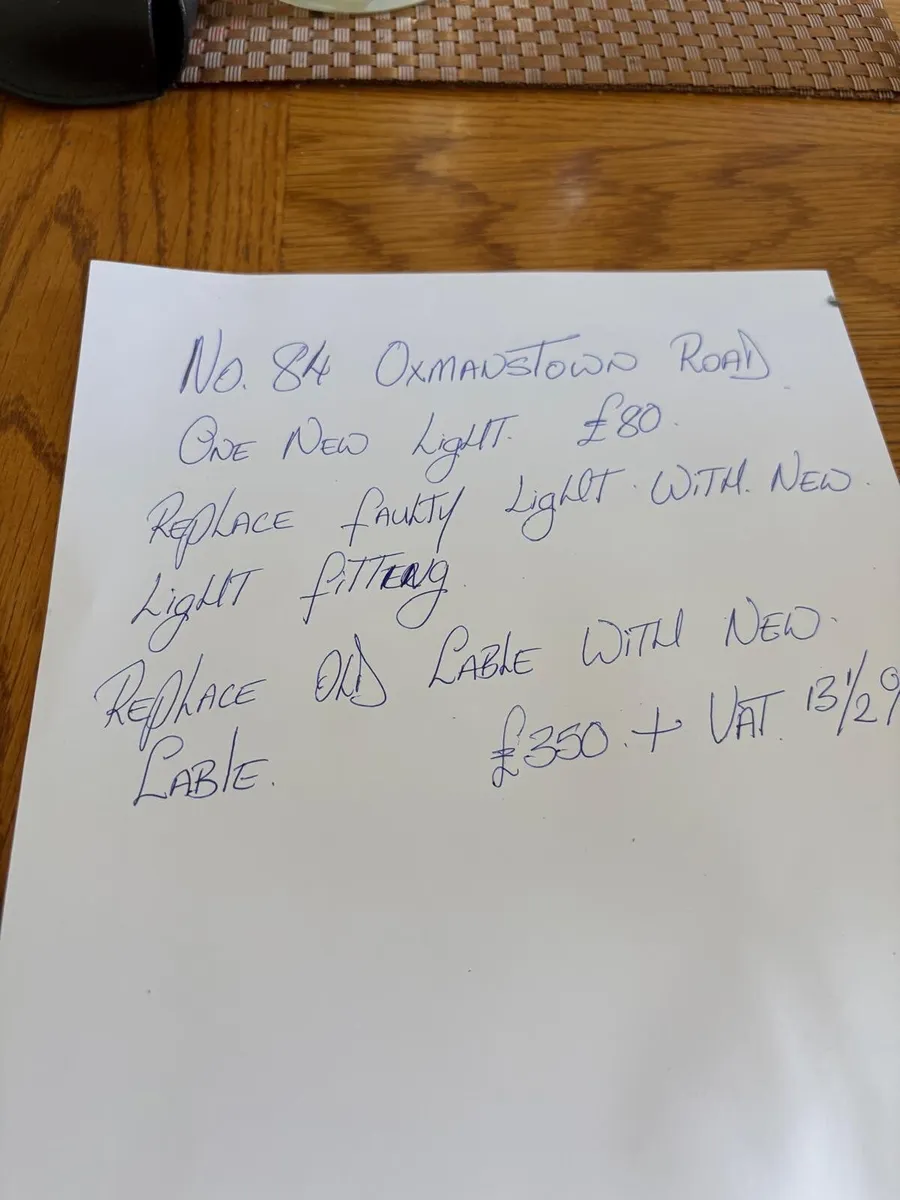 No. 84 OXMANSTOWN ROAD
ONE NEW LIGHT. £80.
REPLACE FAULTY LIGHT WITH NEW.
LIGHT FITTING.
REPLACE OLD CABLE WITH NEW.
CABLE. £350. + VAT. 13 1/2 %